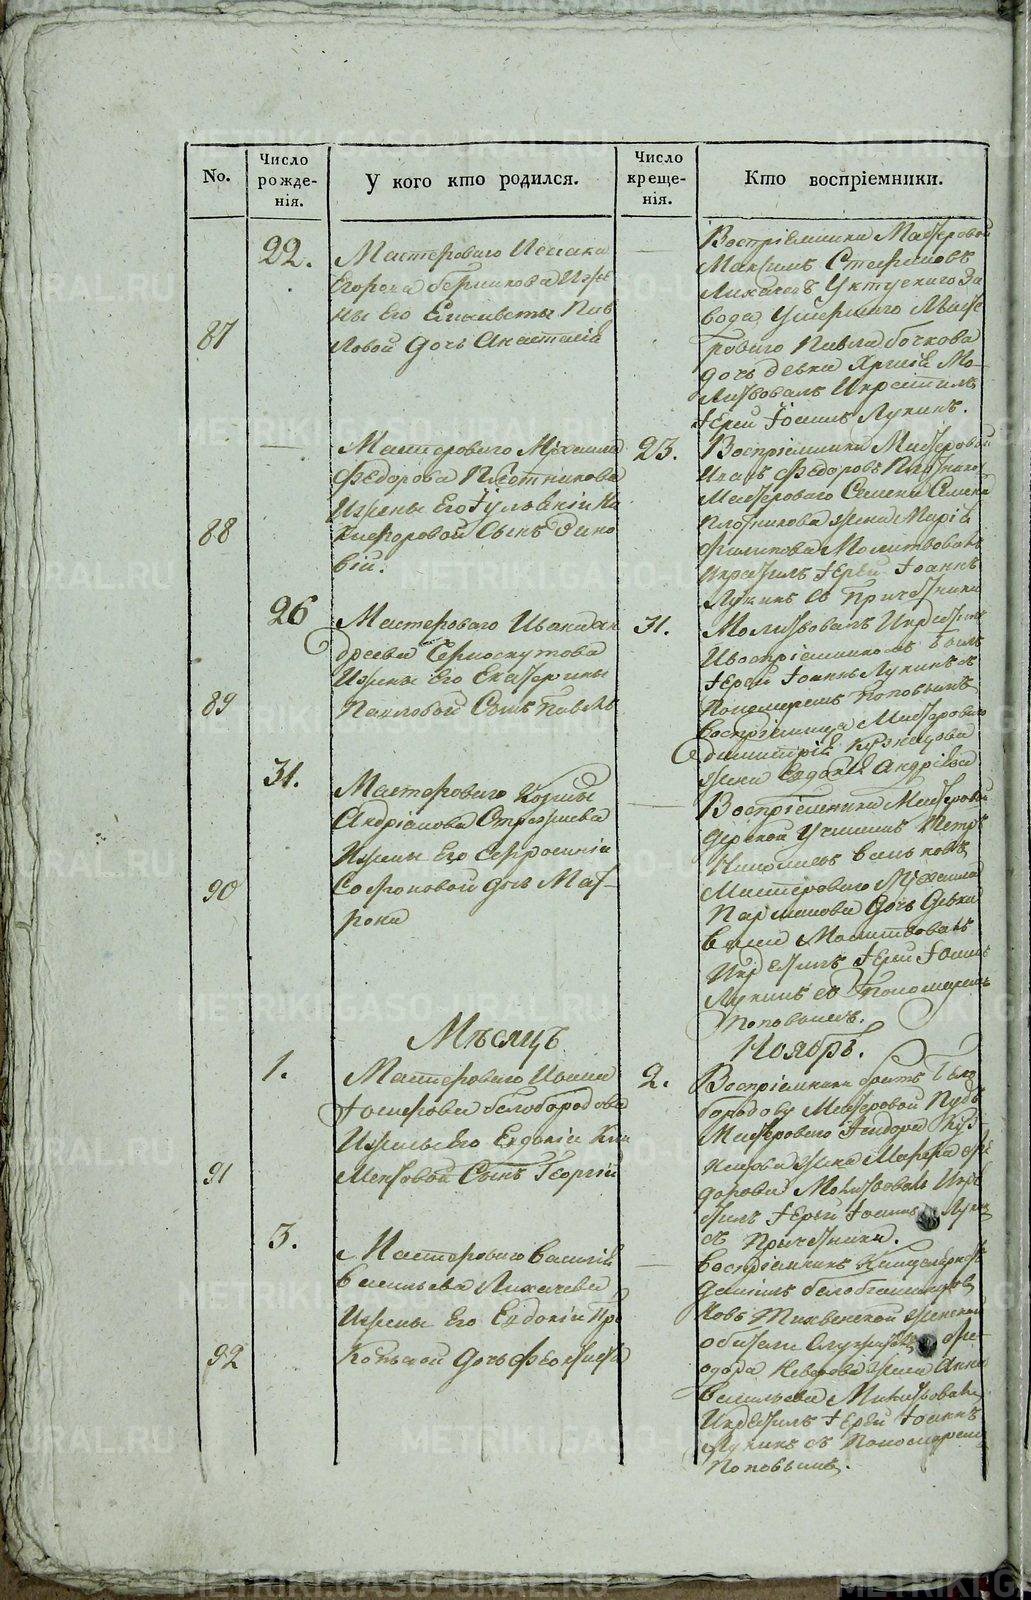 No.
Число рожде-нія.
У кого кто родился.
Число креще-нія.
Кто воспріемники.
22.
87
Мастероваго Исаака
Егорова Берникова Изже
ны Его Елисаветы Пав
ловой дочь Анастасія
Воспріемники Мастеровой
Максимъ Стефановъ
Лихачевъ Уктускаго За
вода Умершаго Масте
роваго Павла Бочкова
дочь девка
Молитвовалъ Икрестилъ
Іерей Іоаннъ Лукинъ.
88
Мастероваго Михаила
Федорова Плотникова
Ижены Его Іуліаніи Ни
кифоровой Сынъ Зино
вій.
23.
Воспріемники Мастеровой
Федоровъ
Мастероваго Семена
Плотникова жена Марія
Филипова Молитвовалъ
Икрестилъ Іерей Іоаннъ
Лукинъ Съ Причетники
26
89
Мастероваго Ивана Ан
дреева Черноскутова
Ижены Его Екатерины
Павловой Сынъ Павелъ
31.
Молитвовалъ Икрестилъ
Ивоспріемникомъ былъ
Іерей Іоаннъ Лукинъ съ
Пономаремъ Поповымъ
Воспріемница Мастероваго
Димитрія Кузнецова
жена Евдокія Андріева
31.
90
Мастероваго Козмы
Андріанова
Ижены Его Ефросиніи
Софроновой дочь Мат-
рона
Воспріемники Мастеровой
Петръ
Мастероваго Михаила
дочь девка
Молитвовалъ
Икрестилъ Іерей Іоаннъ
Лукинъ съ Пономаремъ
Поповымъ.
Мѣсяцъ
Ноябрь.
1.
91
Мастероваго Ивана
Іосифова Белобородова
Ижены Его Евдокіи Кли
ментовой Сынъ Георгій
2.
Воспріемники братъ Бело
бородову Мастеровой
Мастероваго Исидора Куз-
нецова жена Марфа Фе
дорова Молитвовалъ Икре
стилъ Іерей Іоаннъ Лукинъ
съ Причетники.
3.
92
Мастероваго Василія
Васильева Лихачева
Ижены Его Евдокіи Про
копьевой дочь Феоктиста
Воспріемники
Тихвинской женской
обители Служителя Фе-
одора жена Анна
Васильева Молитвовалъ
Икрестилъ Іерей Іоаннъ
Лукинъ съ Пономаремъ
Поповымъ.
METRIKI.GASO-URAL.RU